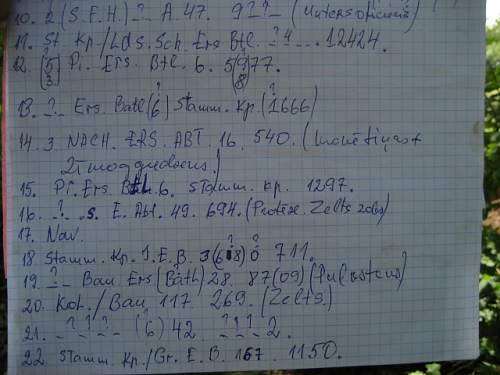 10. 2.(S.F.H.) ? A. 47. 9 ? ? (Untersoficieris)
11. St Kp./Lds. Sch. Ers Btl. ? 4 ... 12424.
12. (5/3) Pi. Ers. Btl. 6. 5(9/8)77.
13. ? Ers. Batl(6) Stamm. Kp. (1666)
14. 3. NACH. ERS. ABT. 16. 540.
15. Pi. Ers. Btl. 6. Stamm. Kp. 1297.
16. ? .s. E. Abt. 49. 694. (Protēze. Zelts zobs)
17. Nav.
18 Stamm. Kp. J.E.B. 3(6 i 8) 0 711.
19. ? Bau. Ers (Batl) 28. 87(09) (Pulkstenis)
20. Kol./Bau 117 269. (Zelts)
21. ? ? ? (6) 42 ? ? ? 2.
22. Stamm. Kp./Gr. E.B. 167 1150.